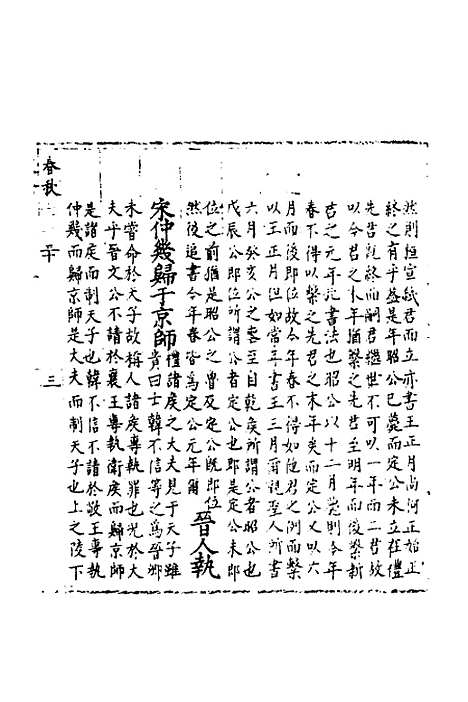 然則桓宣弒君而立亦書王正月尚何正始正
終之有乎盖是年昭公已薨而定公未立在禮
先君既終而嗣君繼世不可以一年而二君故
以今君之末年猶繫之先君至明年而後繫新
君之元年記書法也昭公以十二月薨則今年
春不得以繫之先君之末年矣而定公又以六
月而後即位故今年春不得如隱君之例而繫
以王正月但如常年書王三月爾觀至人所書
六月癸亥公之喪至自乾侯所謂公者昭公也
戊辰公即位所謂公者定公也即是定公未即
位之前猶是昭公之魯及定公既即位
然後追書今年春皆爲定公元年爾
晉人執
宋仲幾歸于京師
禮諸侯之大夫見于天子雖
貴曰士韓不信等之爲晉卿
未嘗命於天子故稱人諸侯專執罪也况於大
夫乎晉文公不請於襄王專執衛侯而歸京師
是諸侯而制天子也韓不信不請於敬王專執
仲幾而歸京師是大夫而制天子也上之陵下
春秋
三